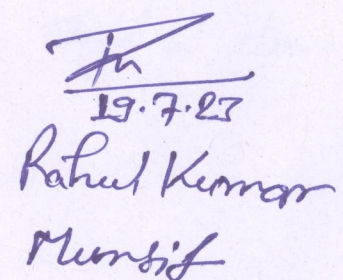 19.7.23
Rahul Kumar
Munsif